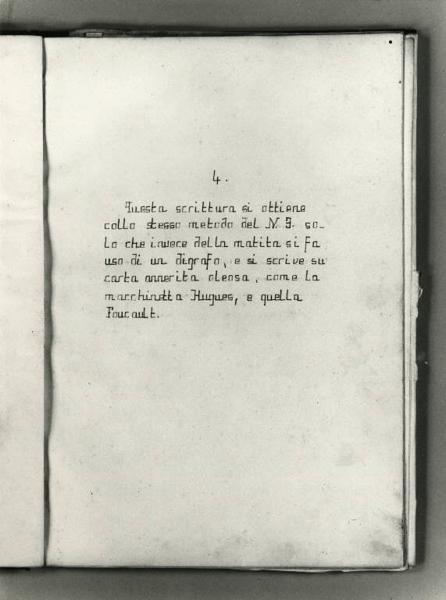 4.
Questa scrittura si ottiene
collo stesso metodo del N. 3. so-
lo che invece della matita si fa
uso di un digrafo, e si scrive su
carta annerita oleosa, come la
macchinetta Hugues, e quella
Foucault.